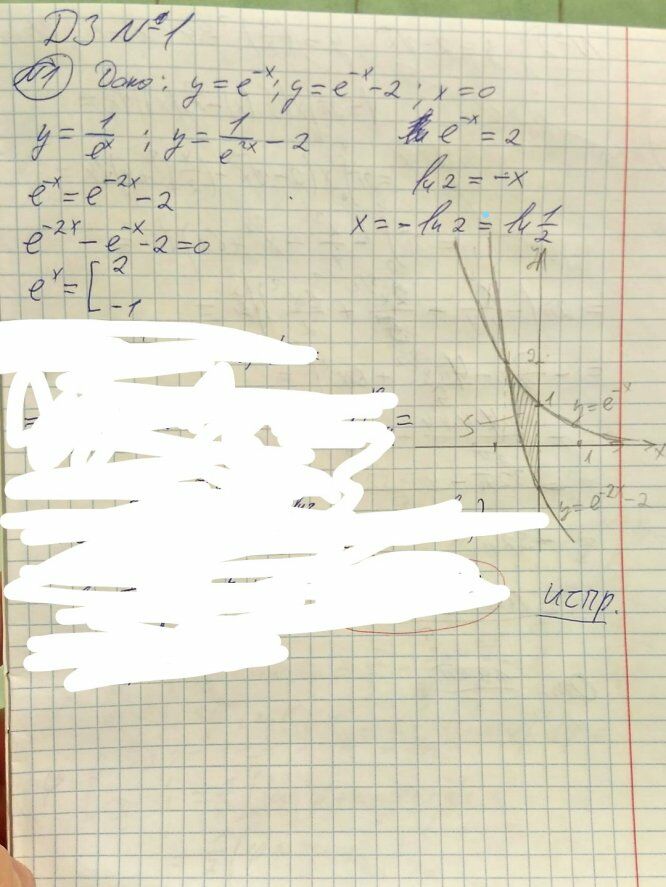 ДЗ №1
№1 Дано: y = e^{-x}; y = e^{-x} - 2; x = 0
y = 1/e^x ; y = 1/e^{2x} - 2
e^{-x} = e^{-2x} - 2
e^{-2x} - e^{-x} - 2 = 0
e^x = [ 2
-1
e^{-x} = 2
ln 2 = -x
x = -ln 2 = ln 1/2
y
2
1
y = e^{-x}
S
1
x
y = e^{-2x} - 2
=
испр.